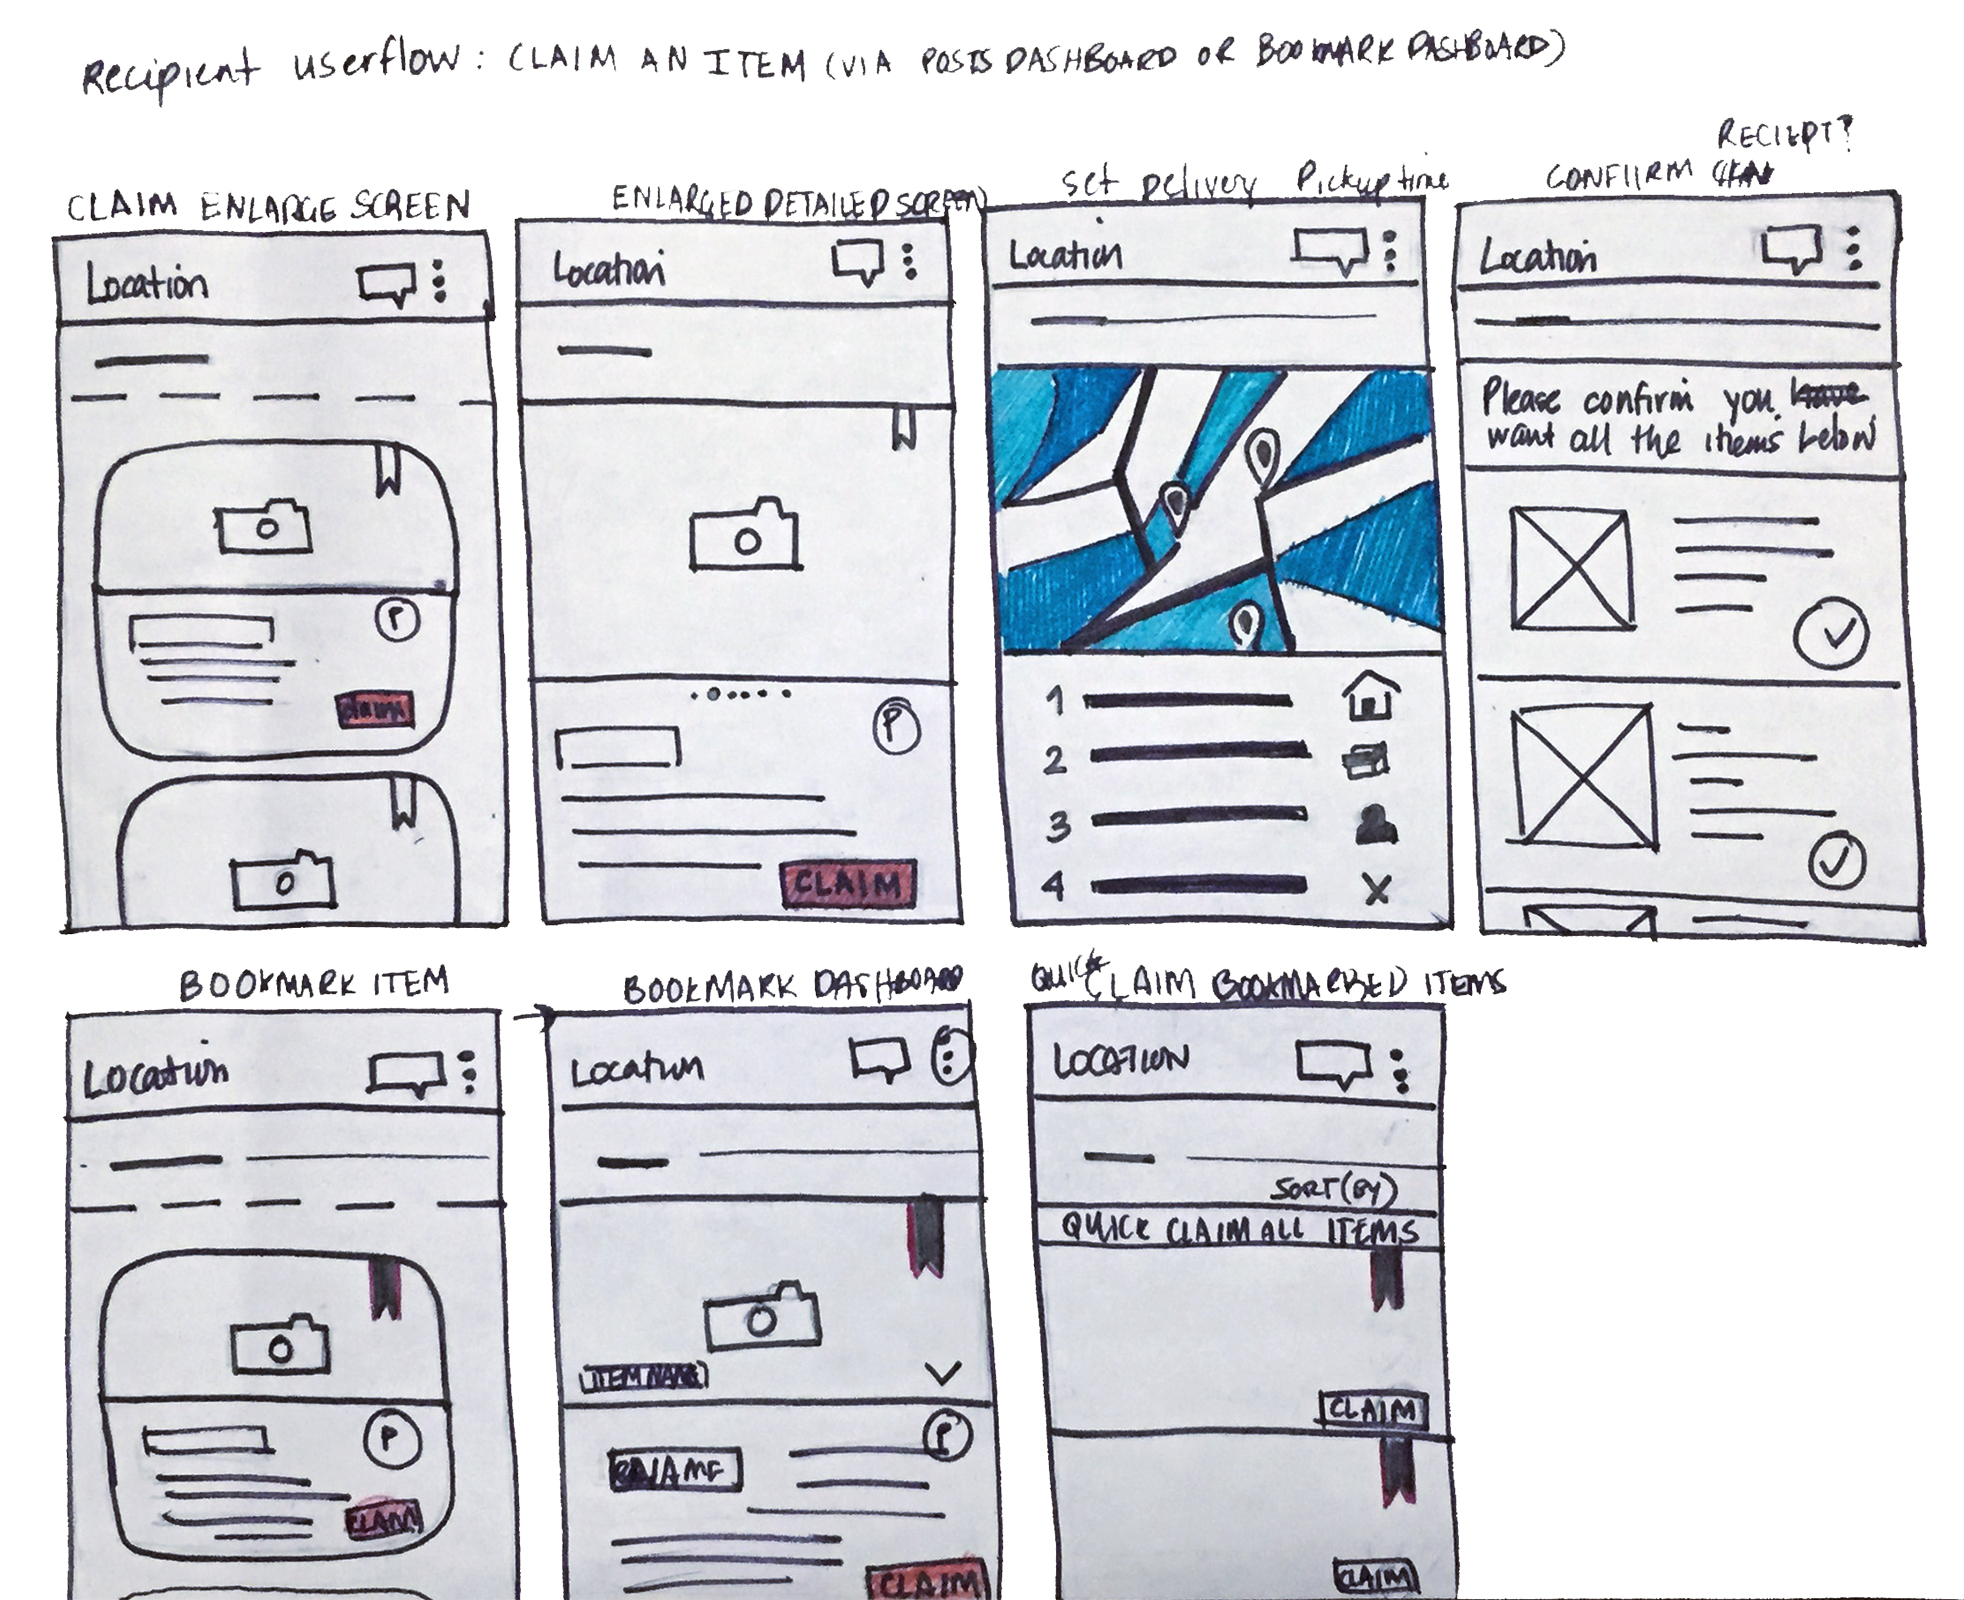 Recipient userflow: CLAIM AN ITEM (VIA POSTS DASHBOARD OR BOOKMARK DASHBOARD)
CLAIM ENLARGE SCREEN
Location
P
claim
ENLARGED DETAILED SCREEN
Location
P
CLAIM
Set Delivery Pickup time
Location
1
2
3
4
RECIEPT?
CONFIIRM
Location
Please confirm you have
want all the items below
BOOKMARK ITEM
Location
P
CLAIM
BOOKMARK DASHBOARD
Location
ITEM NAME
P
CLAIM
QUICK CLAIM BOOKMARKED ITEMS
LOCATION
SORT(BY)
QUICK CLAIM ALL ITEMS
CLAIM
CLAIM